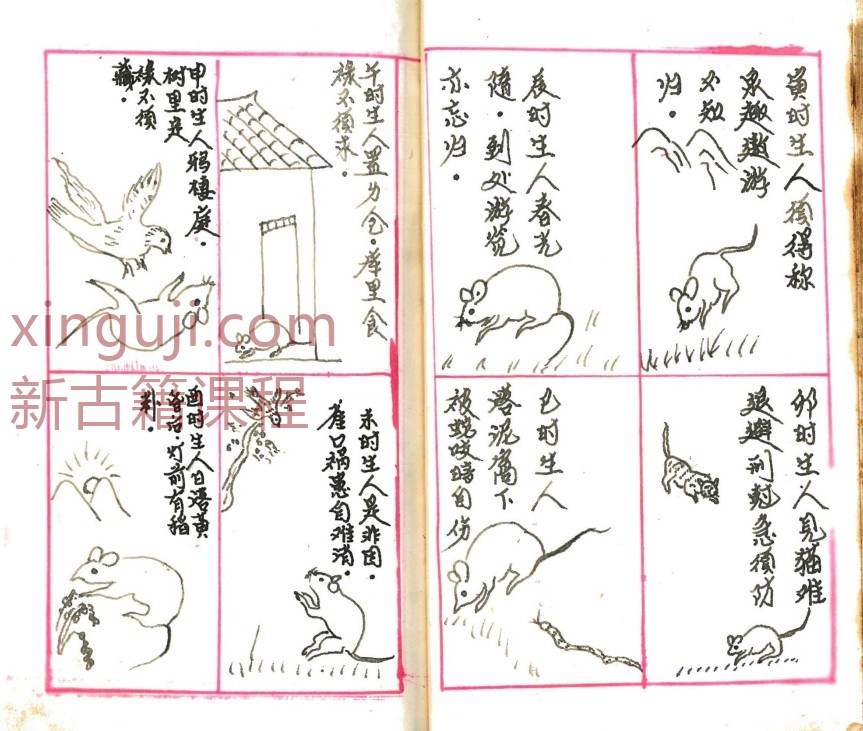 寅时生人须得称
趣遨游
不知
归。
卯时生人见猫难
退避刑剋急须防
辰时生人春光
随。到处游览
亦忘归。
巳时生人
落泥窝下
被蛇咬时自伤
午时生人置仓。库里食
禄不须求。
未时生人是非困。
口祸患自难消。
申时生人鸦栖庭。
树里是
禄不须
藏。
酉时生人日落黄
昏后。灯前有稻
xinguji.com
新古籍课程